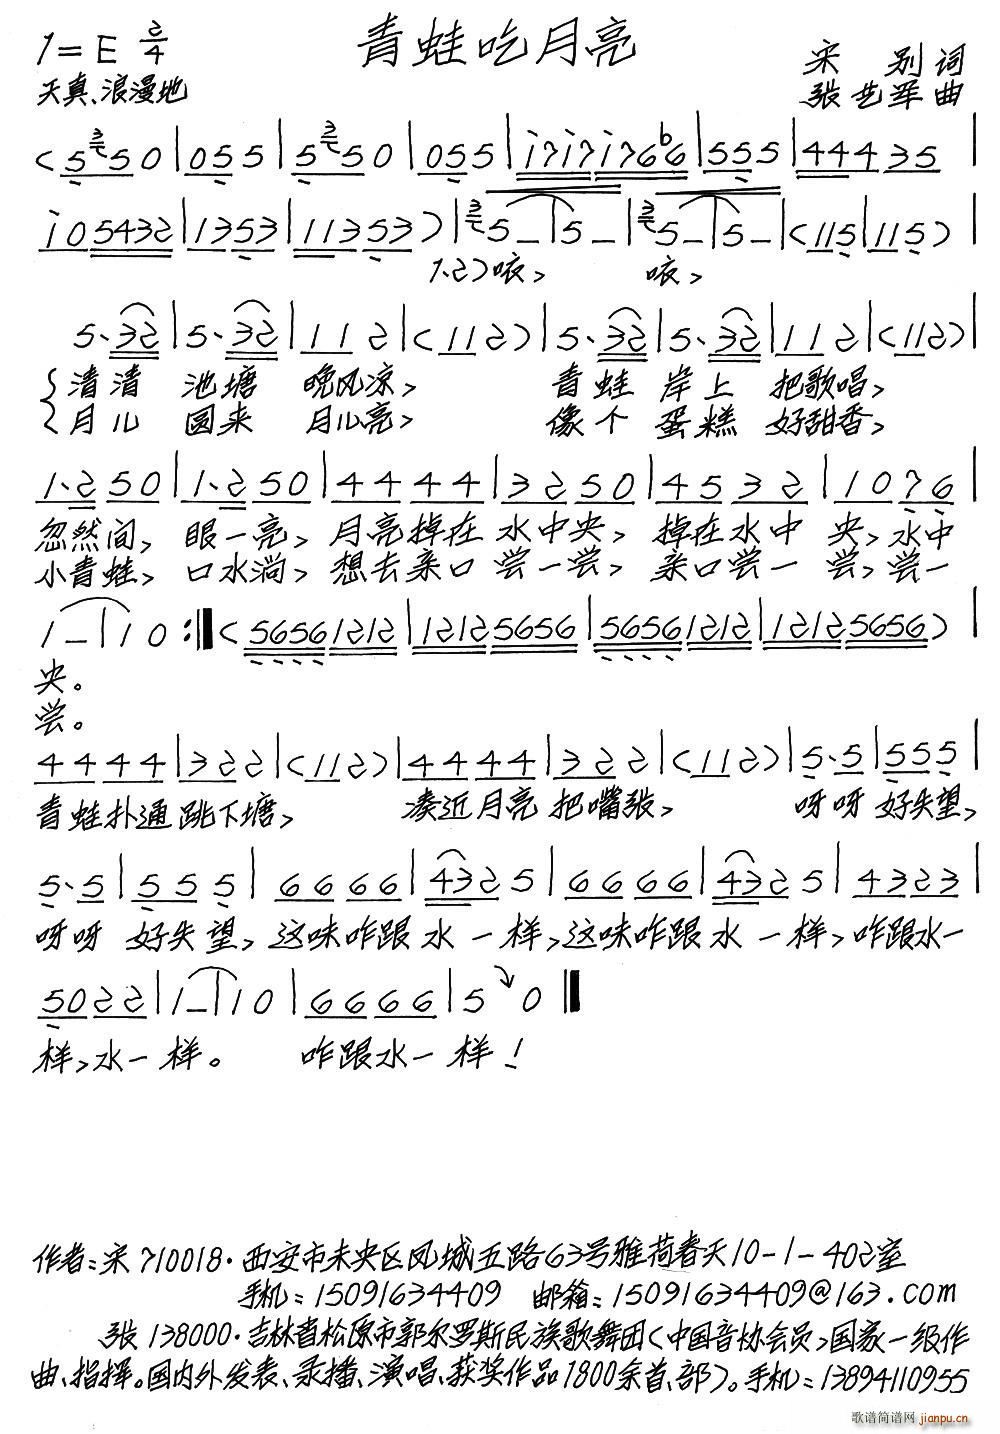 1=E 2/4 青蛙吃月亮
宋 别 词
天真、浪漫地 张艺军 曲
(5 5 0 | 0 5 5 | 5 5 0 | 0 5 5 | i 7 i 7 i 7 6 b6 | 5 5 5 | 4 4 4 3 5 |
i 0 5 4 3 2 | 1 3 5 3 | 1 1 3 5 3 ) | 5 – | 5 – | 5 – | 5 – | ( 1 1 5 | 1 1 5 ) |
1、2、)咴, 咴,
5、3 2 | 5、3 2 | 1 1 2 | ( 1 1 2 ) | 5、3 2 | 5、3 2 | 1 1 2 | ( 1 1 2 ) |
清清 池塘 晚风凉, 青蛙 岸上 把歌唱,
月儿 圆来 月儿亮, 像个 蛋糕 好甜香,
1、2 5 0 | 1、2 5 0 | 4 4 4 4 | 3 2 5 0 | 4 5 3 2 | 1 0 7 6 |
忽然间, 眼一亮, 月亮掉在 水中央, 掉在水中 央, 水中
小青蛙, 口水淌, 想去亲口 尝一尝, 亲口尝一 尝, 尝一
1 – | 1 0 :‖ ( 5656 1212 | 1212 5656 | 5656 1212 | 1212 5656 ) |
央。
尝。
4 4 4 4 | 3 2 2 | ( 1 1 2 ) | 4 4 4 4 | 3 2 2 | ( 1 1 2 ) | 5、5 | 5 5 5 |
青蛙扑通 跳下塘, 凑近月亮 把嘴张, 呀呀 好失望,
5、5 | 5 5 5 | 6 6 6 6 | 4 3 2 5 | 6 6 6 6 | 4 3 2 5 | 4 3 2 3 |
呀呀 好失望, 这味咋跟 水一样, 这味咋跟 水一样, 咋跟水一
5 0 2 2 | 1 – | 1 0 | 6 6 6 6 | 5 0 ‖
样, 水一样。 咋跟水一样!
作者:宋 710018·西安市未央区凤城五路63号雅荷春天10-1-402室
手机:15091634409 邮箱:15091634409@163.com
张 138000·吉林省松原市郭尔罗斯民族歌舞团(中国音协会员,国家一级作
曲、指挥。国内外发表、录播、演唱、获奖作品1800余首、部)。手机:13894110955
歌谱简谱网 jianpu.cn